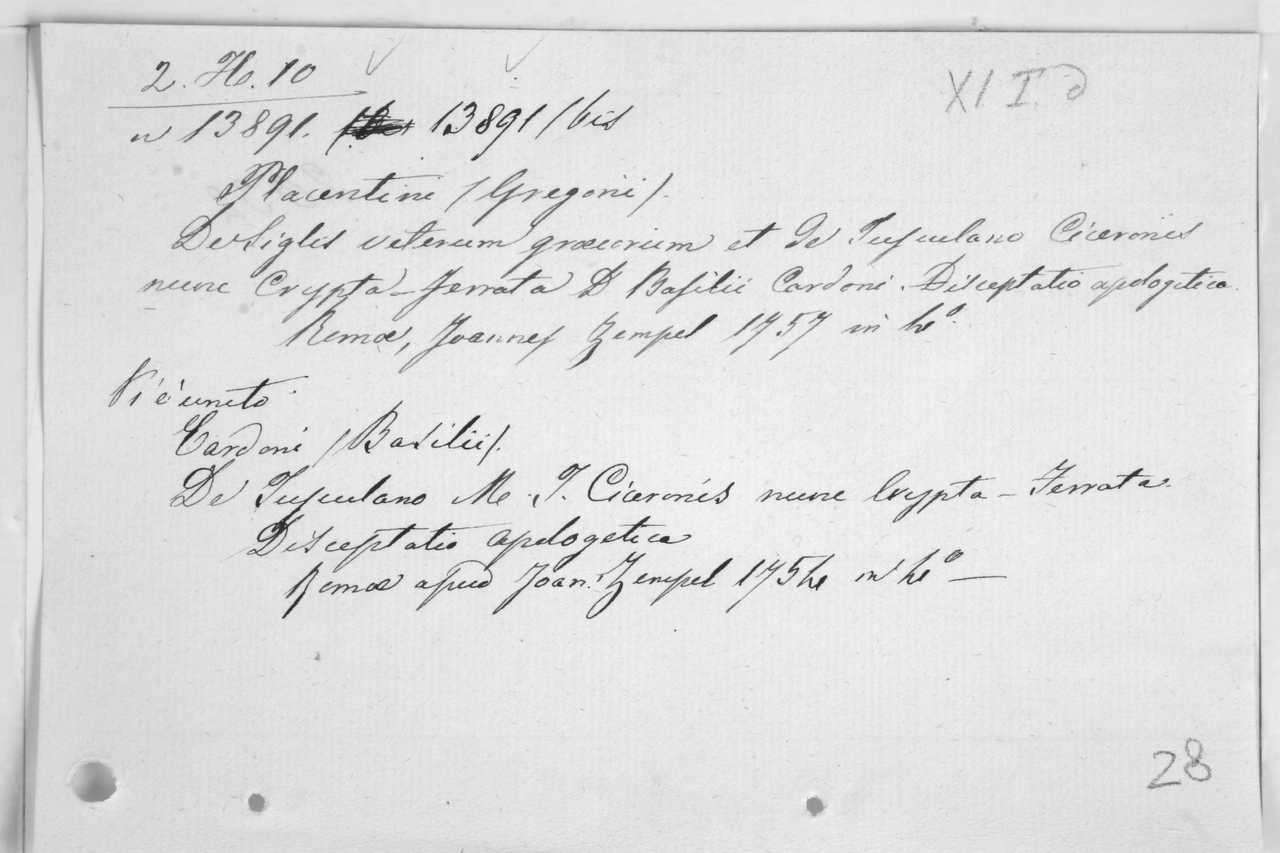 2. H. 10
XI I. d
n 13891. 13891/bis
Placentini (Gregorii).
De Siglis veterum græcorum et de Tusculano Ciceronis
nunc Crypta-ferrata D Basilii Cardoni. Disceptatio apologetica.
Romæ, Joannes Zempel 1757 in 4º.
Vi è unito
Cardoni (Basilii).
De Tusculano M. T. Ciceronis nunc Crypta-Ferrata
Disceptatio apologetica
Romæ apud Joan. Zempel 1754 in 4º —
28